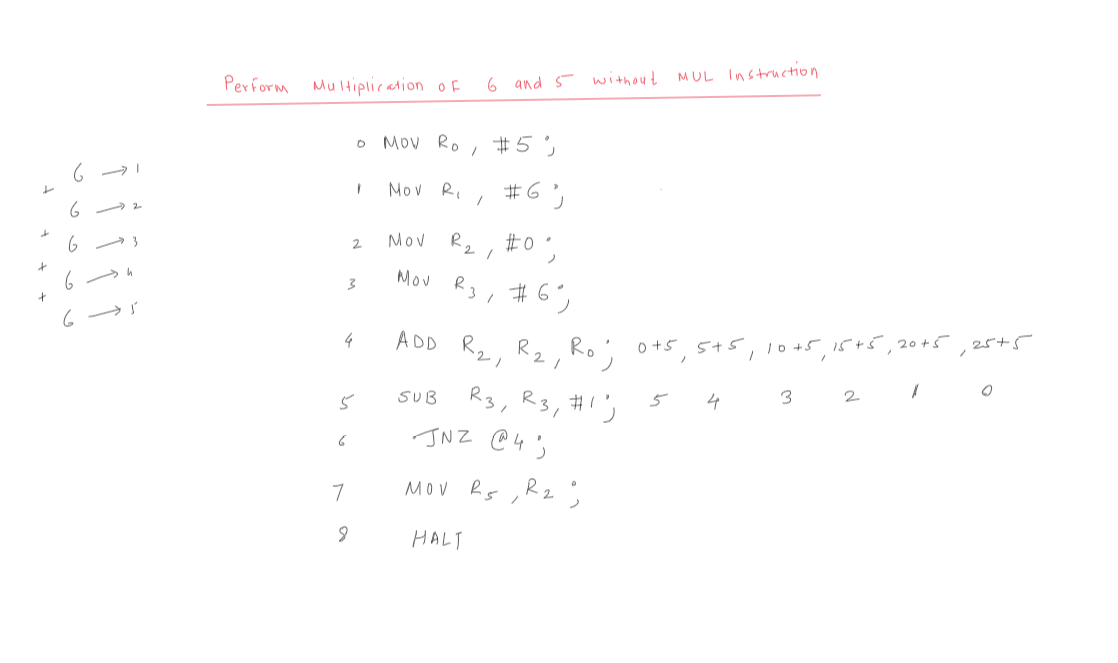 Perform Multiplication of 6 and 5 without MUL Instruction
6 → 1
+
6 → 2
+
6 → 3
+
6 → 4
+
6 → 5
0 MOV R0, #5;
1 MOV R1, #6;
2 MOV R2, #0;
3 MOV R3, #6;
4 ADD R2, R2, R0; 0+5, 5+5, 10+5, 15+5, 20+5, 25+5
5 SUB R3, R3, #1; 5 4 3 2 1 0
6 JNZ @4;
7 MOV R5, R2;
8 HALT